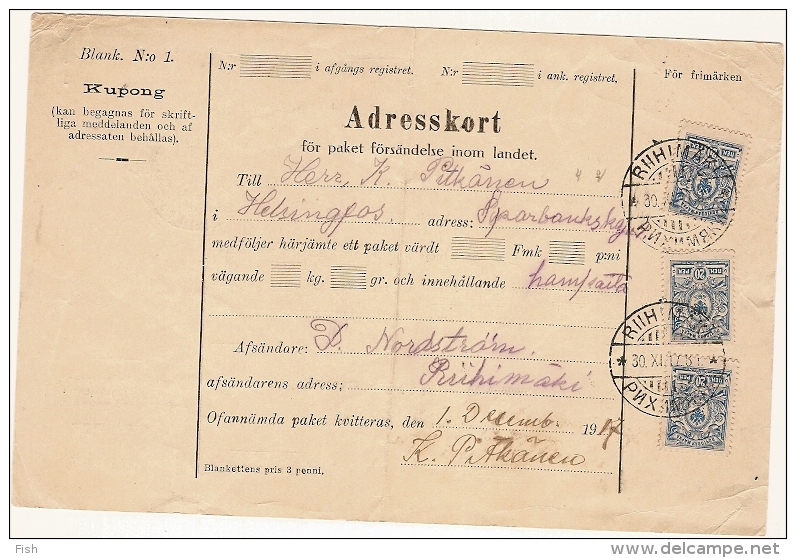 Blank. N:o 1.
Kupong
(kan begagnas för skrift-
liga meddelanden och af
adressaten behållas).
N:r i afgångs registret.
N:r i ank. registret.
För frimärken
Adresskort
för paket försändelse inom landet.
Till Herr, K. Pitkänen
i Helsingfos adress:
medföljer härjämte ett paket värdt Fmk p:ni
vägande kg. gr. och innehållande
Afsändare: D. Nordström.
afsändarens adress; Riihimäki
Ofannämda paket kvitteras, den 1. Decemb. 1917
K. Pitkänen
Blankettens pris 3 penni.
RIIHIMÄKI
30.
РИХИМЯКИ
20
RIIHIMÄKI
* 30. XI. 17. *
РИХИМЯКИ
20
Fish
www.delcampe.net